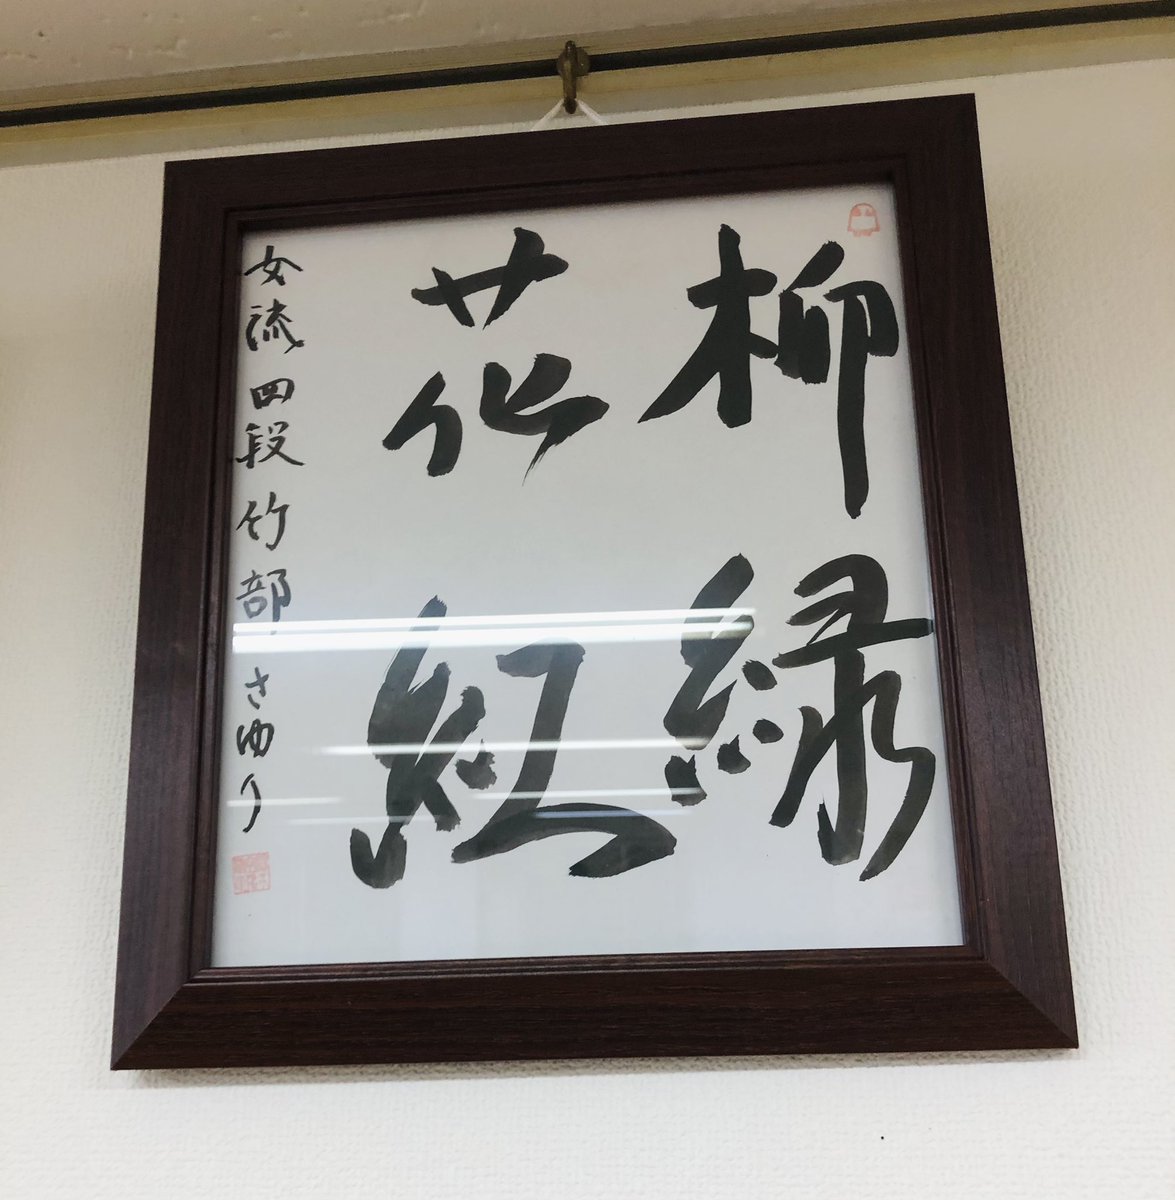 柳緑
花紅
女流四段 竹部さゆり